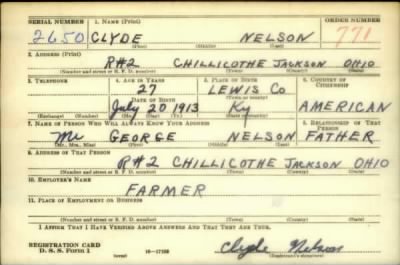 SERIAL NUMBER 1. NAME (Print) ORDER NUMBER
2650 CLYDE NELSON 771
(First) (Middle) (Last)
2. ADDRESS (Print)
R#2 CHILLICOTHE JACKSON OHIO
(Number and street or R. F. D. number) (Town) (County) (State)
3. TELEPHONE 4. AGE IN YEARS 5. PLACE OF BIRTH 6. COUNTRY OF CITIZENSHIP
27 LEWIS CO
DATE OF BIRTH (Town or county)
July 20 1913 Ky AMERICAN
(Exchange) (No.) (Mo.) (Day) (Yr.) (State or country)
7. NAME OF PERSON WHO WILL ALWAYS KNOW YOUR ADDRESS 8. RELATIONSHIP OF THAT PERSON
Mr GEORGE NELSON FATHER
(Mr., Mrs., Miss) (First) (Middle) (Last)
9. ADDRESS OF THAT PERSON
R#2 CHILLICOTHE JACKSON OHIO
(Number and street or R. F. D. number) (Town) (County) (State)
10. EMPLOYER'S NAME
FARMER
11. PLACE OF EMPLOYMENT OR BUSINESS
(Number and street or R. F. D. number) (Town) (County) (State)
I AFFIRM THAT I HAVE VERIFIED ABOVE ANSWERS AND THAT THEY ARE TRUE.
REGISTRATION CARD
D. S. S. Form 1 (over) Clyde Nelson
(Registrant's signature)